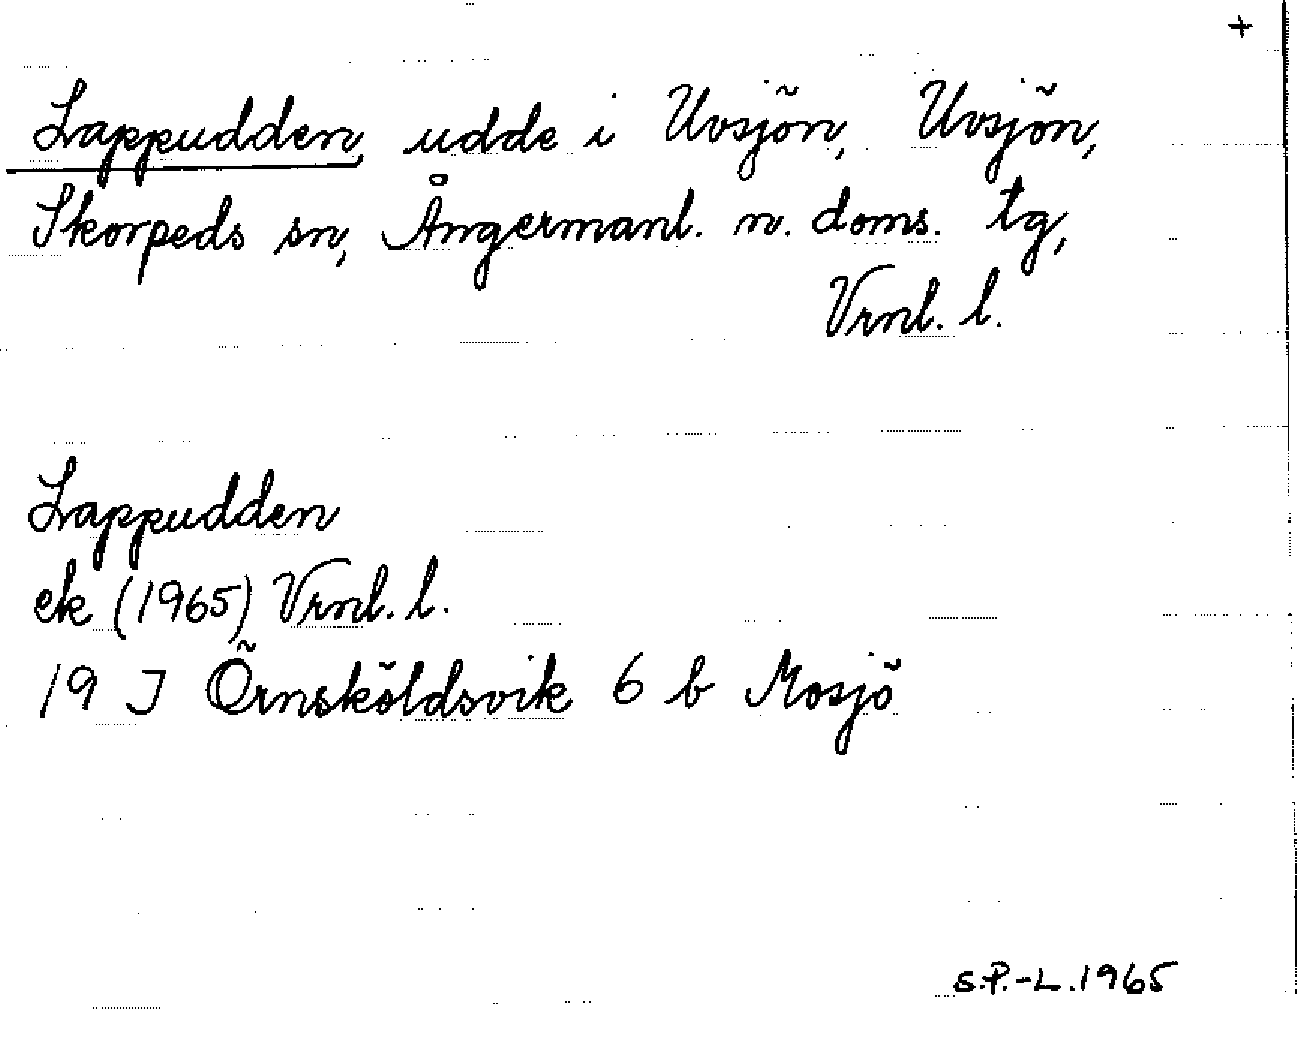 +
Lappudden, udde i Uvsjön, Uvsjön,
Skorpeds sn, Ångermanl. n. doms. tg,
Vrnl. l.
Lappudden
ek (1965) Vrnl. l.
19 J Örnsköldsvik 6 b Mosjö
S.P.-L.1965